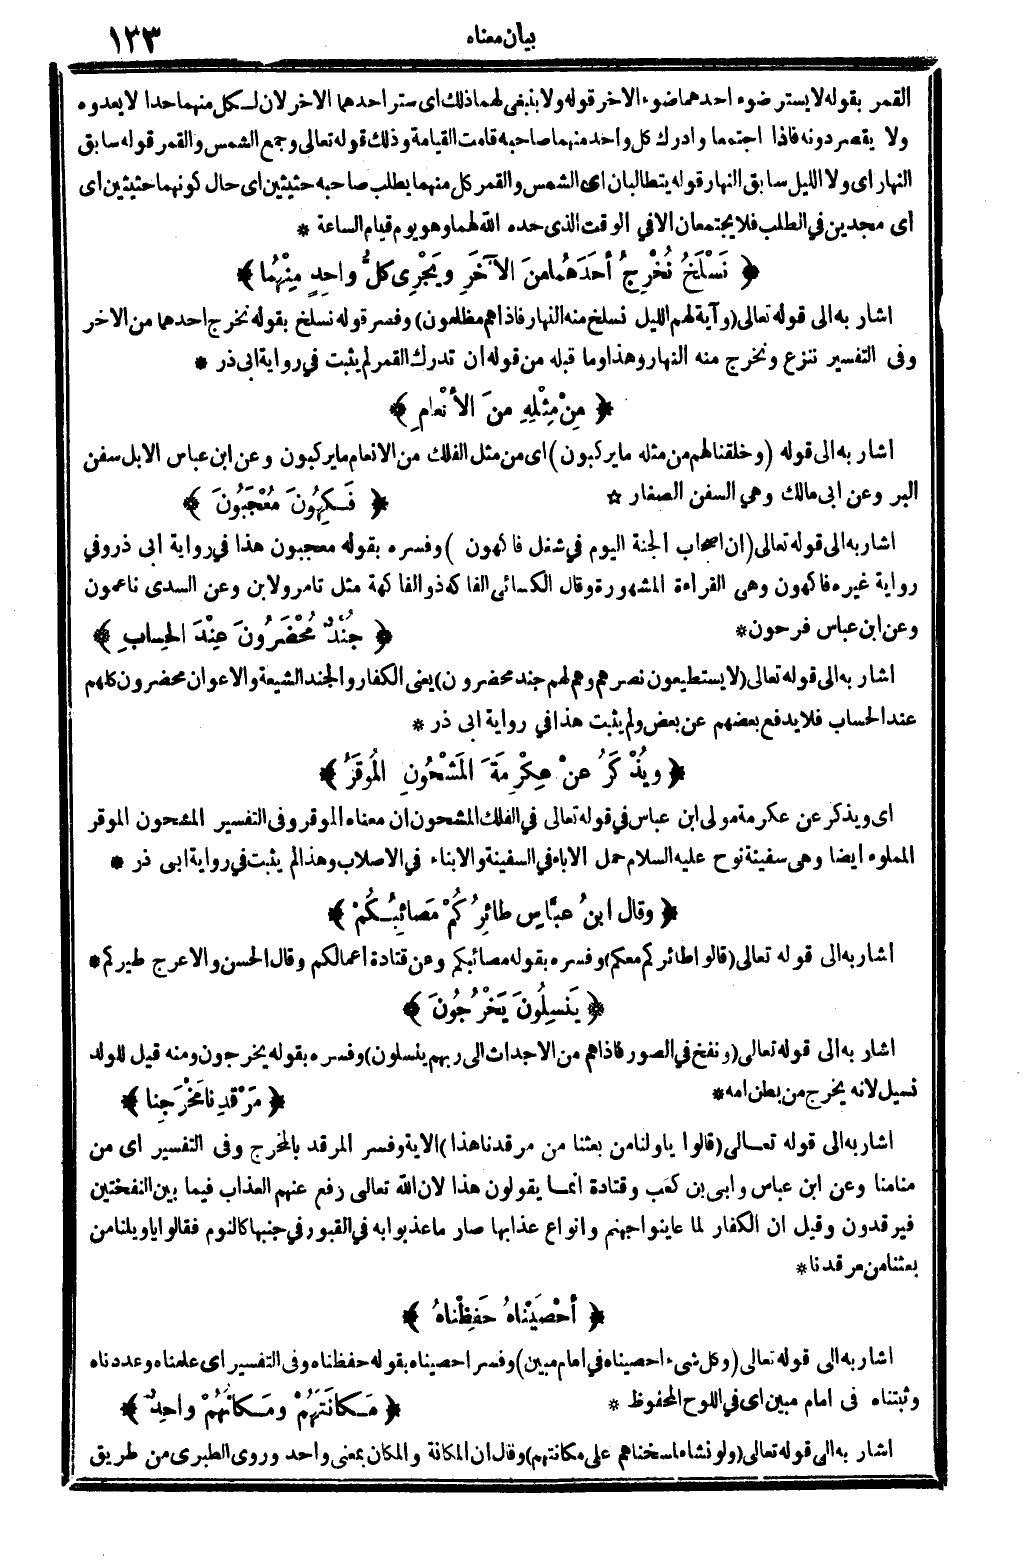 بيان معناه
١٣٣
القمر بقوله لا يستر ضوء احدهما ضوء الاخر قوله ولا ينبغى لهما ذلك اى ستر احدهما الاخر لان لكل منهما حدا لا يعدوه
ولا يقصر دونه فاذا اجتمعا وادرك كل واحد منهما صاحبه قامت القيامة وذلك قوله تعالى وجمع الشمس والقمر قوله سابق
النهار اى ولا الليل سابق النهار قوله يتطالبان اى الشمس والقمر كل منهما يطلب صاحبه حثيثين اى حال كونهما حثيثين اى
اى مجدين فى الطلب فلا يجتمعان الا فى الوقت الذى حده الله لهما وهو يوم قيام الساعة *
﴿ نَسْلَخُ نُخْرِجُ أَحَدَهُما مِنَ الآخَرِ ويَجْرِى كلُّ واحِدٍ مِنْهُما ﴾
اشار به الى قوله تعالى (وآية لهم الليل نسلخ منه النهار فاذا هم مظلمون) وفسر قوله نسلخ بقوله نخرج احدهما من الاخر
وفى التفسير ننزع ونخرج منه النهار وهذا وما قبله من قوله ان تدرك القمر لم يثبت فى رواية ابى ذر *
﴿ مِنْ مِثْلِهِ مِنَ الأَنْعامِ ﴾
اشار به الى قوله (وخلقنا لهم من مثله ما يركبون) اى من مثل الفلك من الانعام ما يركبون وعن ابن عباس الابل سفن
البر وعن ابى مالك وهى السفن الصغار ☆
﴿ فَكِهُونَ مُعْجَبُونَ ﴾
اشار به الى قوله تعالى (ان اصحاب الجنة اليوم فى شغل فاكهون) وفسره بقوله معجبون هذا فى رواية ابى ذر وفى
رواية غيره فاكهون وهى القراءة المشهورة وقال الكسائى الفاكه ذو الفاكهة مثل تامر ولابن وعن السدى ناعمون
وعن ابن عباس فرحون *
﴿ جُنْدٌ مُحْضَرُونَ عِنْدَ الحِسابِ ﴾
اشار به الى قوله تعالى (لا يستطيعون نصرهم وهم لهم جند محضرون) يعنى الكفار والجند الشيعة والاعوان محضرون كلهم
عند الحساب فلا يدفع بعضهم عن بعض ولم يثبت هذا فى رواية ابى ذر *
﴿ ويُذْكَرُ عنْ عِكْرِمَةَ المَشْحُونِ المُوقَرُ ﴾
اى ويذكر عن عكرمة مولى ابن عباس فى قوله تعالى فى الفلك المشحون ان معناه الموقر وفى التفسير المشحون الموقر
المملوء ايضا وهى سفينة نوح عليه السلام حمل الاباء فى السفينة والابناء فى الاصلاب وهذا لم يثبت فى رواية ابى ذر *
﴿ وقال ابنُ عبَّاسٍ طائِرُكُمْ مَصائِبُكُمْ ﴾
اشار به الى قوله تعالى (قالوا طائركم معكم) وفسره بقوله مصائبكم وعن قتادة اعمالكم وقال الحسن والاعرج طيركم *
﴿ يَنْسِلُونَ يَخْرُجُونَ ﴾
اشار به الى قوله تعالى (ونفخ فى الصور فاذا هم من الاجداث الى ربهم ينسلون) وفسره بقوله يخرجون ومنه قيل للولد
نسيل لانه يخرج من بطن امه *
﴿ مَرْقَدِنا مَخْرَجِنا ﴾
اشار به الى قوله تعالى (قالوا ياولنا من بعثنا من مرقدنا هذا) الاية وفسر المرقد بالمخرج وفى التفسير اى من
منامنا وعن ابن عباس وابى بن كعب وقتادة انما يقولون هذا لان الله تعالى رفع عنهم العذاب فيما بين النفختين
فيرقدون وقيل ان الكفار لما عاينوا جهنم وانواع عذابها صار ما عذبوا به فى القبور فى جنبها كالنوم فقالوا ياويلنا من
بعثنا من مرقدنا *
﴿ أحْصَيْناهُ حَفِظْناهُ ﴾
اشار به الى قوله تعالى (وكل شىء احصيناه فى امام مبين) وفسر احصيناه بقوله حفظناه وفى التفسير اى علمناه وعددناه
وثبتناه فى امام مبين اى فى اللوح المحفوظ *
﴿ مَكانَتَهُمْ ومَكانُهُمْ واحِدٌ ﴾
اشار به الى قوله تعالى (ولو نشاء لمسخناهم على مكانتهم) وقال ان المكانة والمكان بمعنى واحد وروى الطبرى من طريق